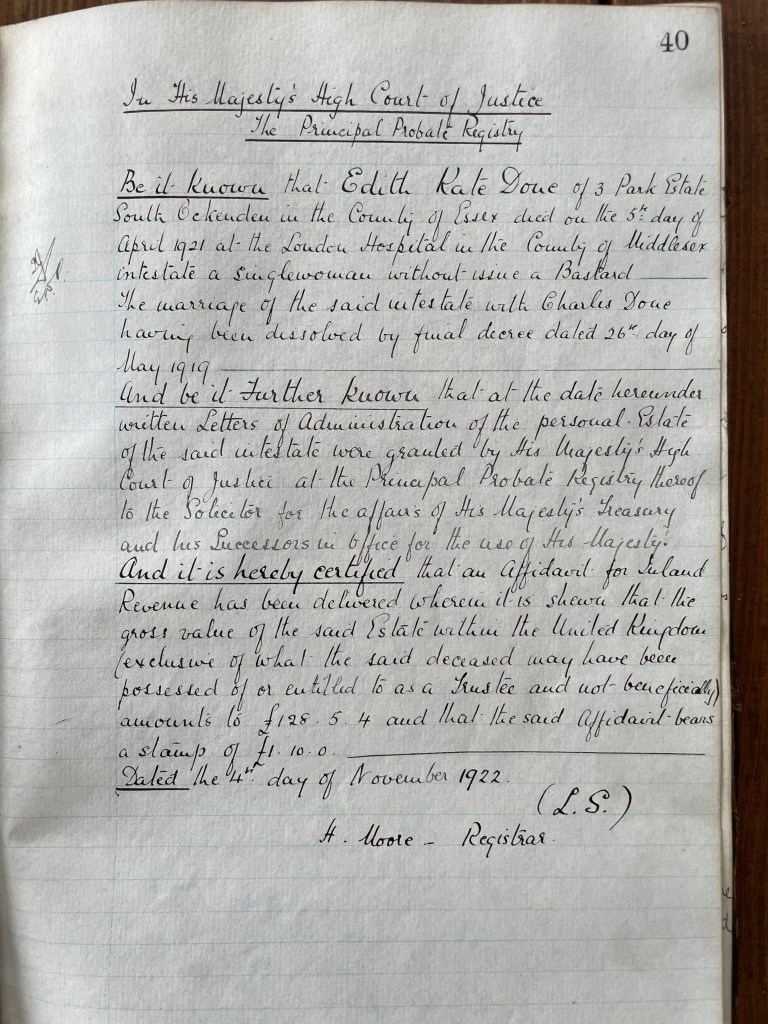 40
In His Majesty's High Court of Justice
The Principal Probate Registry
Be it known that Edith Kate Done of 3 Park Estate
South Ockenden in the County of Essex died on the 5th day of
April 1921 at the London Hospital in the County of Middlesex
intestate a singlewoman without issue a Bastard
The marriage of the said intestate with Charles Done
having been dissolved by final decree dated 26th day of
May 1919
And be it Further known that at the date hereunder
written Letters of Administration of the personal Estate
of the said intestate were granted by His Majesty's High
Court of Justice at the Principal Probate Registry thereof
to the Solicitor for the affairs of His Majesty's Treasury
and his Successors in office for the use of His Majesty.
And it is hereby certified that an Affidavit for Inland
Revenue has been delivered wherein it is shewn that the
gross value of the said Estate within the United Kingdom
(exclusive of what the said deceased may have been
possessed of or entitled to as a Trustee and not beneficially)
amounts to £128. 5. 4 and that the said Affidavit bears
a stamp of £1. 10. 0.
Dated the 4th day of November 1922.
(L.S.)
H. Moore - Registrar.